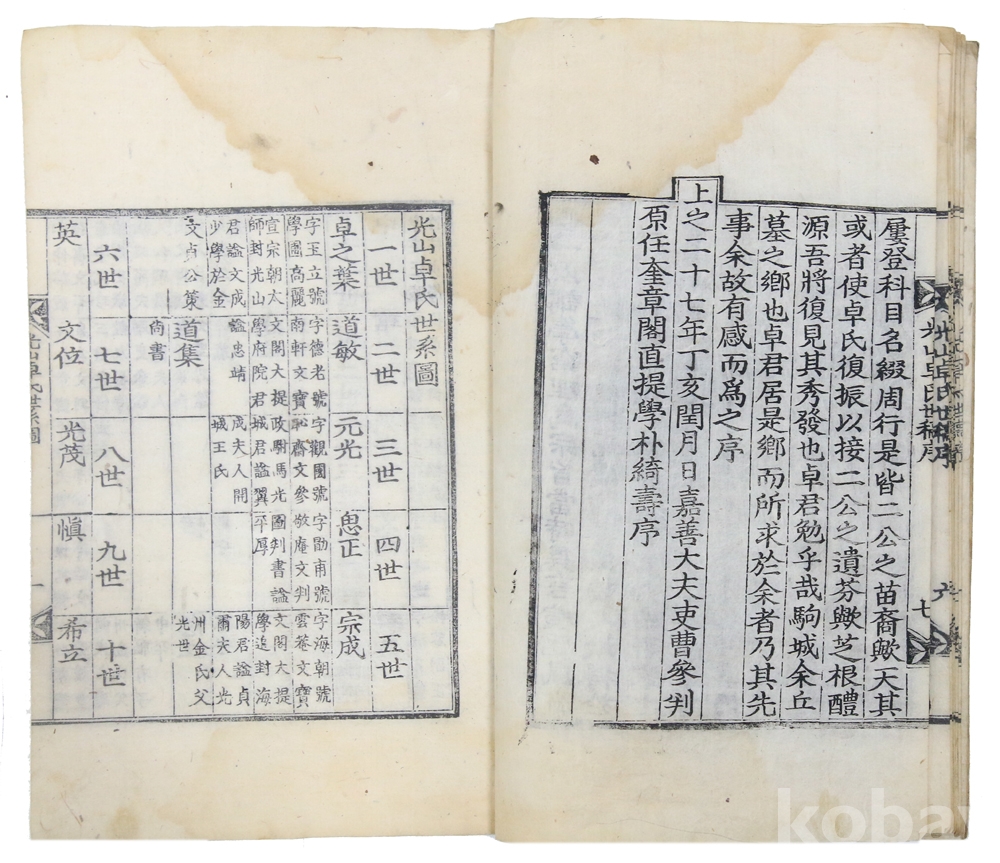 屢登科目名綴周行是皆二公之苗裔歟天其
或者使卓氏復振以接二公之遺芬歟芝根醴
源吾將復見其秀發也卓君勉乎哉駒城余丘
墓之鄉也卓君居是鄉而所求於余者乃其先
事余故有感而爲之序
上之二十七年丁亥閏月日嘉善大夫吏曹參判
原任奎章閣直提學朴綺壽序
光山卓氏世稿序
七
光山卓氏世系圖
一世
二世
三世
四世
五世
卓之葉
字王立號
學圃高麗
宣宗朝太
師封光山
君謚文成
少學於金
文貞公策
道敏
字德老號
南軒文寶
文閣大提
學府院君
謚忠靖
道集
尙書
元光
字觀國號
恥齋文參
政駙馬光
城君謚翼
成夫人開
城王氏
思正
字勖甫號
敬庵文判
圖判書謚
平厚
宗成
字海朝號
雲菴文寶
文閣大提
學追封海
陽君謚貞
肅夫人光
州金氏父
光世
六世
七世
八世
九世
十世
英
文位
光茂
愼
希立
光山卓氏世系圖
一
kobay